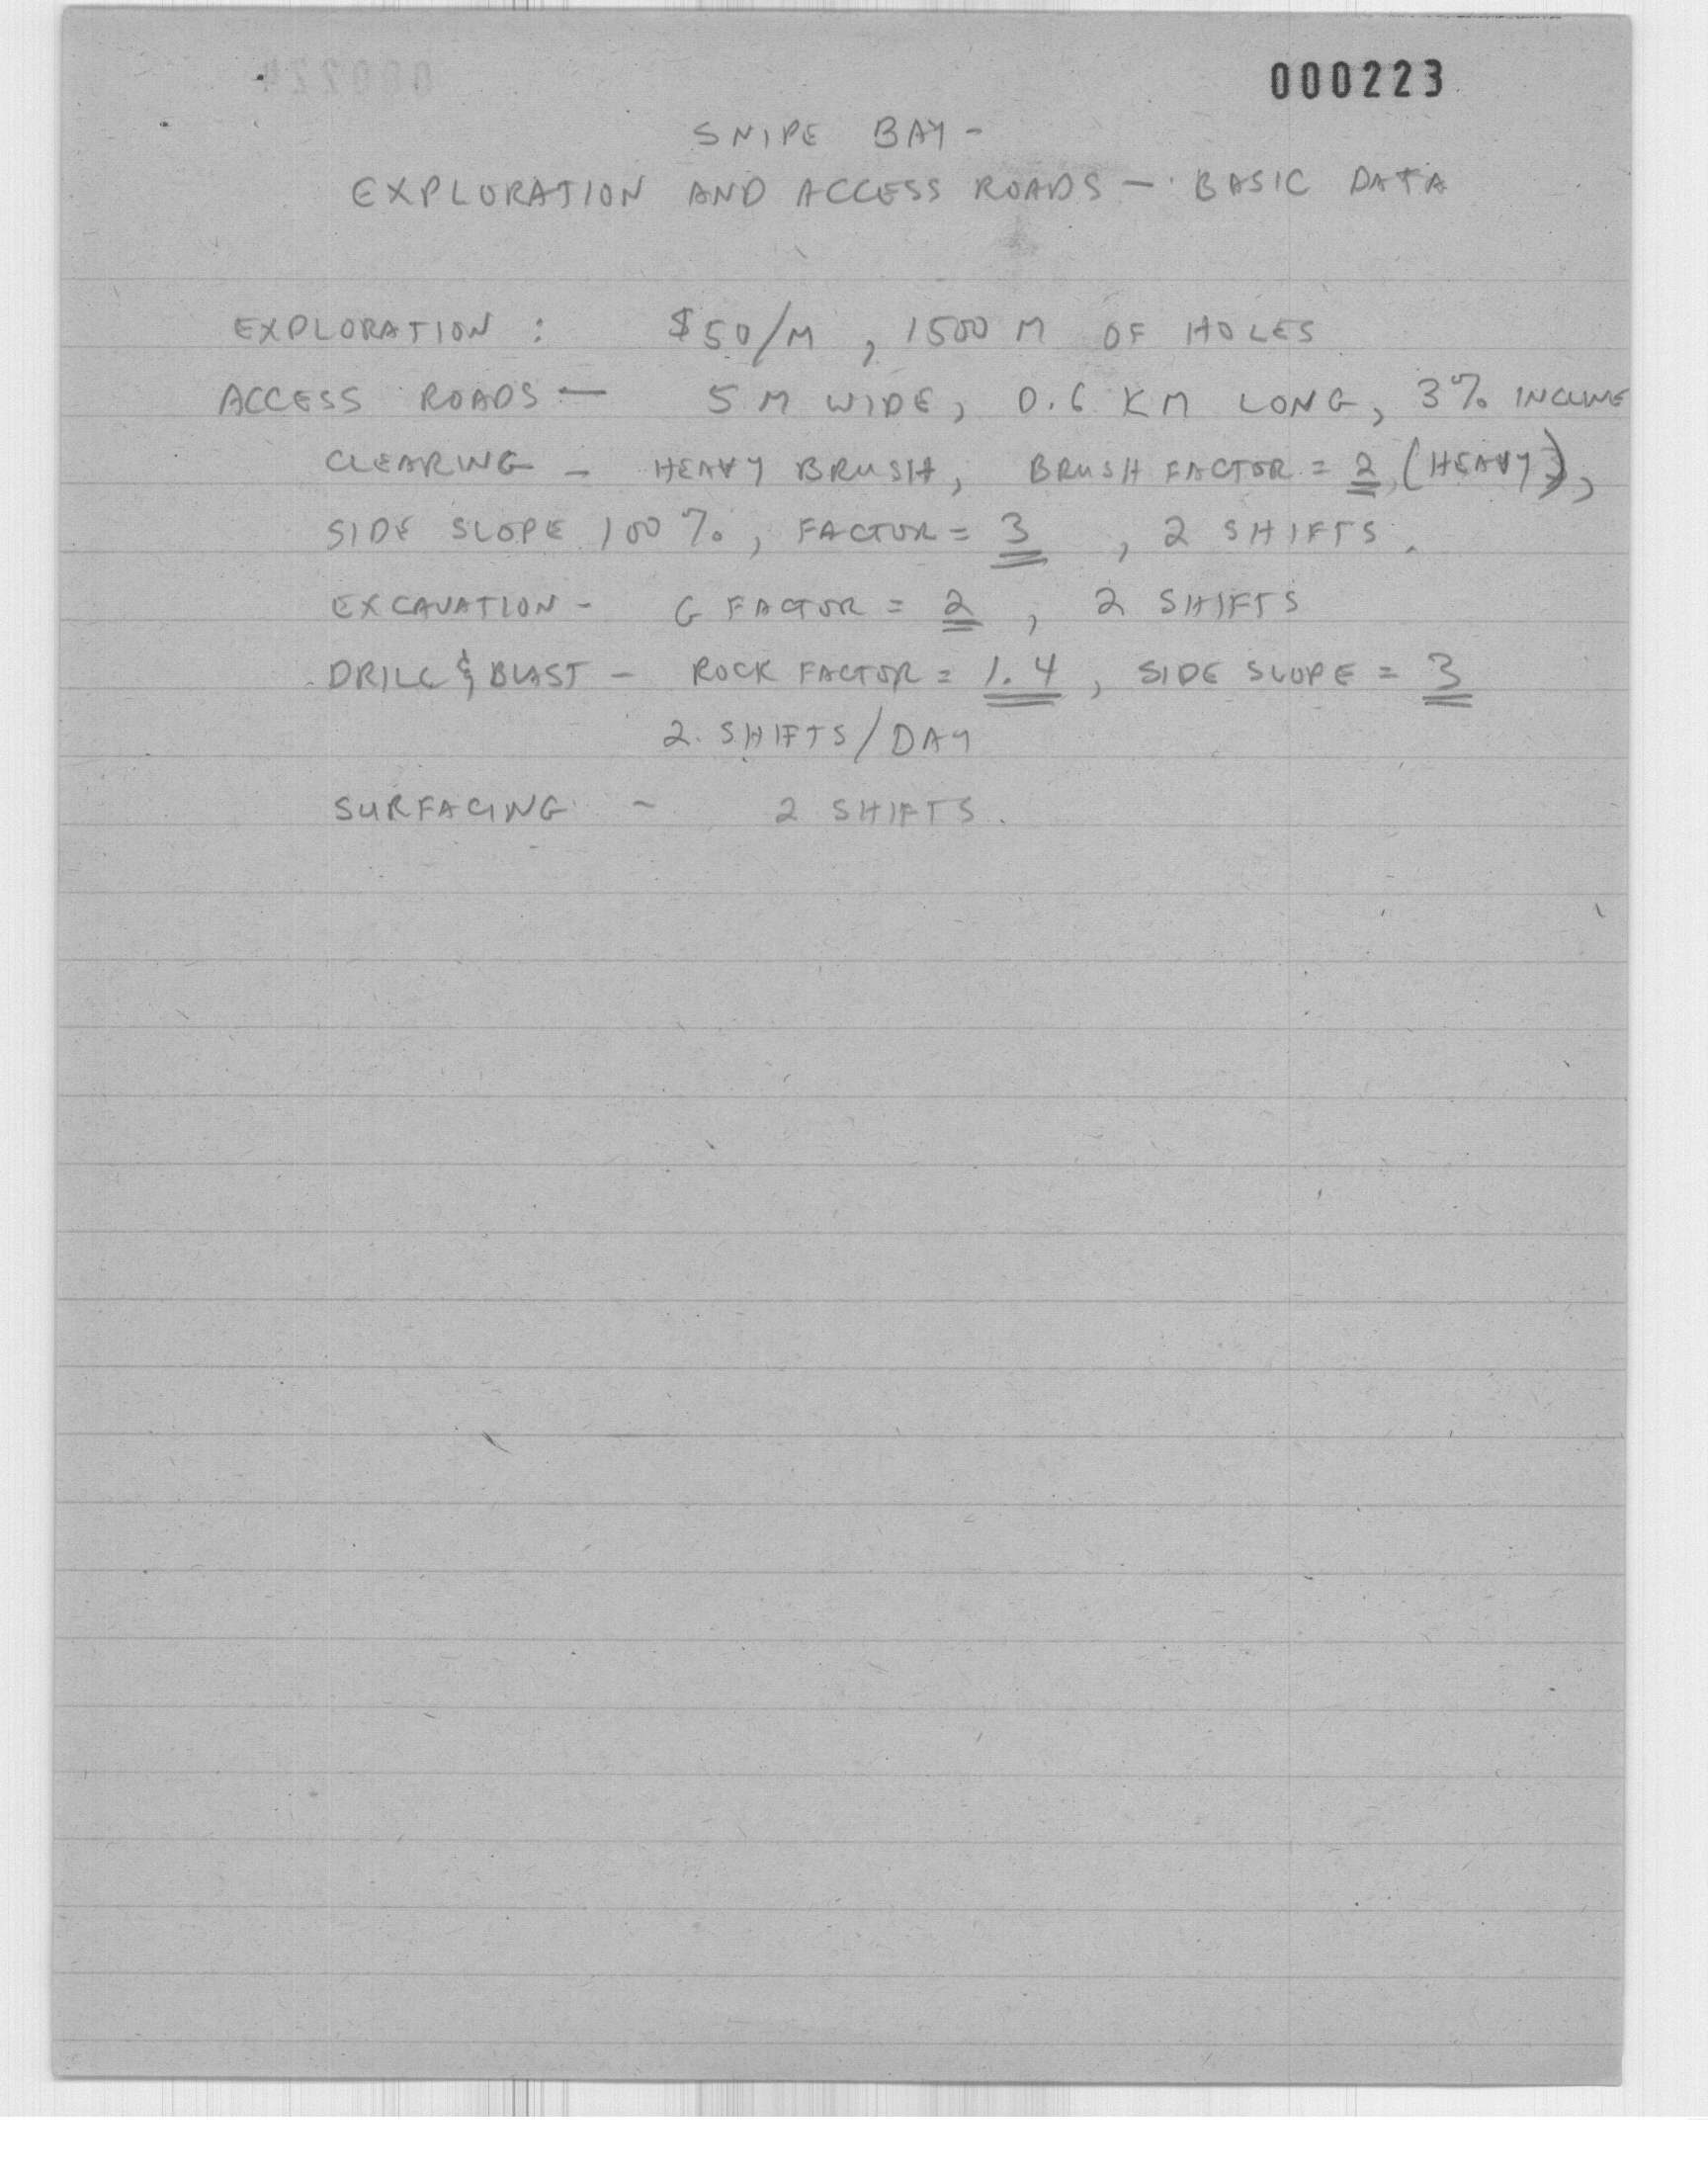 000223
SNIPE BAY -
EXPLORATION AND ACCESS ROADS - BASIC DATA
EXPLORATION : $50/M , 1500 M OF HOLES
ACCESS ROADS - 5 M WIDE, 0.6 KM LONG, 3% INCLINE
CLEARING - HEAVY BRUSH, BRUSH FACTOR = 2 (HEAVY),
SIDE SLOPE 100%, FACTOR = 3 , 2 SHIFTS.
EXCAVATION - G FACTOR = 2 , 2 SHIFTS
DRILL & BLAST - ROCK FACTOR = 1.4 , SIDE SLOPE = 3
2 SHIFTS/DAY
SURFACING - 2 SHIFTS.